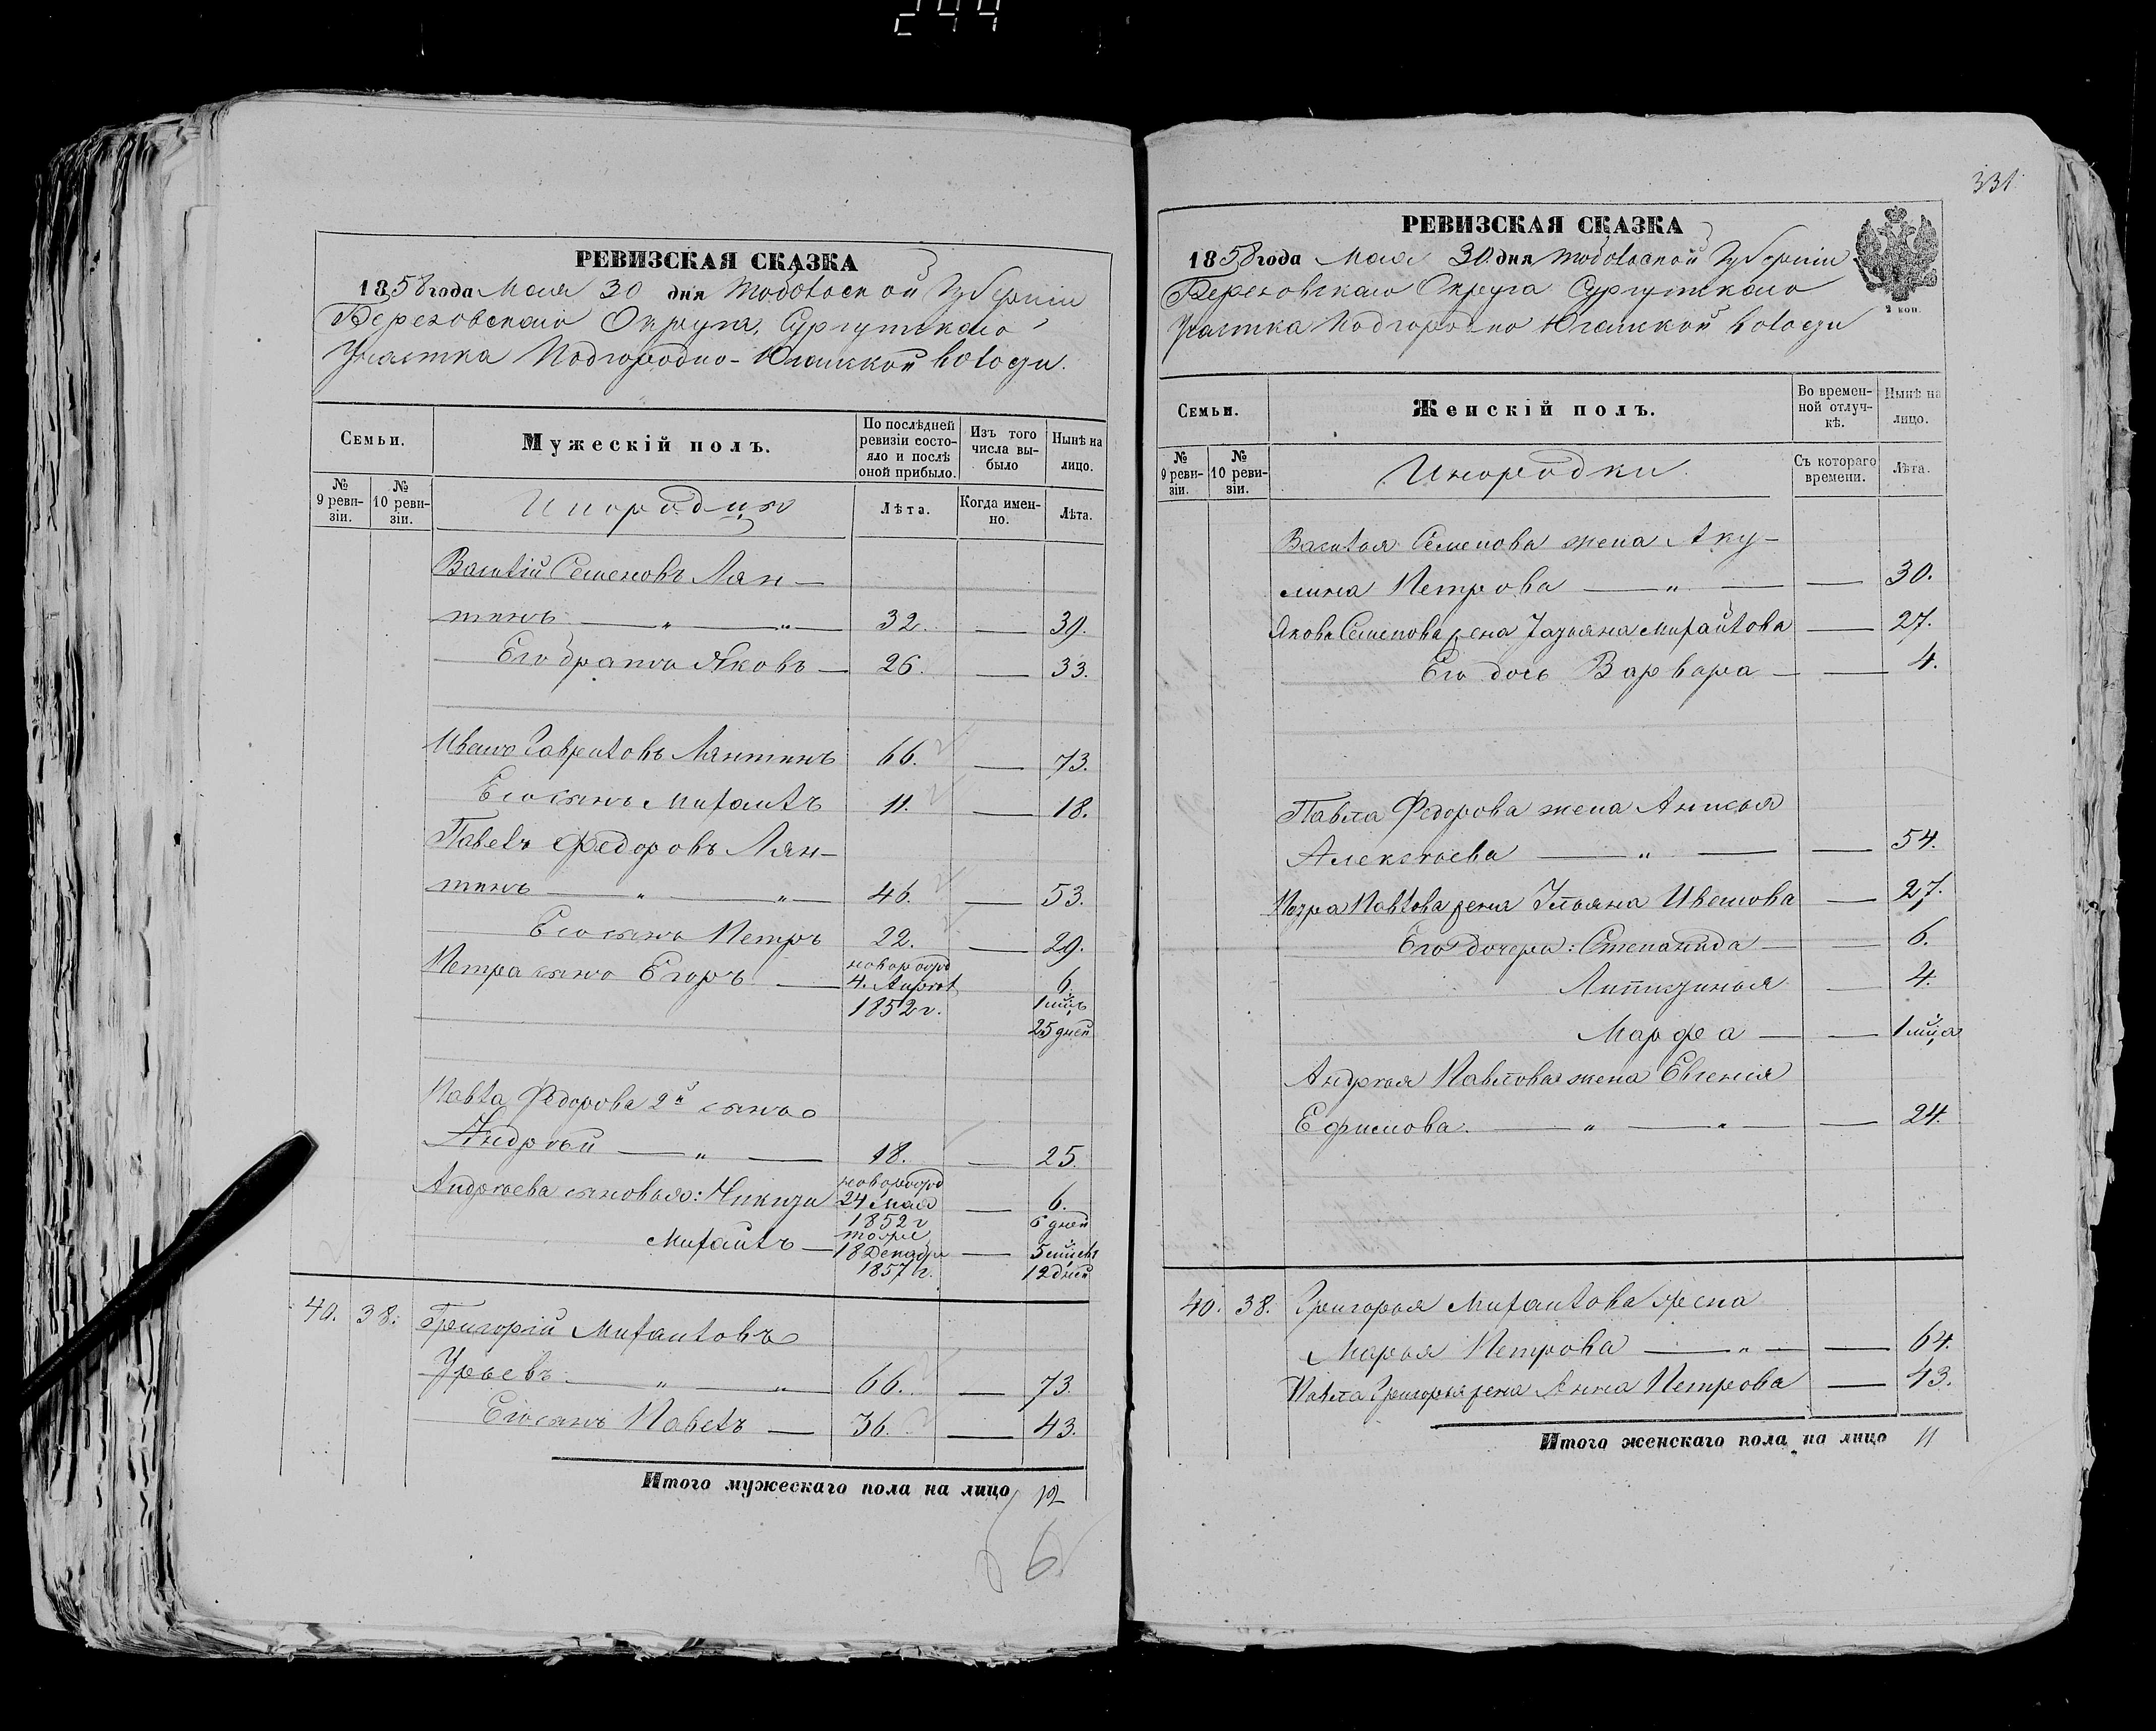 244
РЕВИЗСКАЯ СКАЗКА
1858 года Мая 30 дня Тобольской Губерніи
Березовскаго Округа, Сургутскаго
Участка Подгородно-Юганской волости.
Семьи.
Мужескій полъ.
По послѣдней ревизіи состояло и послѣ оной прибыло.
Изъ того числа выбыло
Нынѣ на лицо.
№ 9 ревизіи.
№ 10 ревизіи.
Инородцы
Лѣта.
Когда именно.
Лѣта.
Василій Семеновъ Лян-
тинъ — „ — „ — 32. — 39.
Его братъ Яковъ — 26. — 33.
Иванъ Гавриловъ Лянтинъ 66. — 73.
Его сынъ Михаилъ 11. — 18.
Павелъ Федоровъ Лян-
тинъ — „ — „ — 46. — 53.
Его сынъ Петръ 22. — 29.
Петра сынъ Егоръ — новорожд 4. Апрѣл 1852 г. 6. 1 мць 25 дней
Павла Федорова 2й сынъ
Андрей — „ — 18. — 25.
Андреева сыновья: Никита новорожд 24 Мая 1852 г — 6. 6 дней
Михаилъ — тоже 18 Декабр 1857 г. — 5 мцевъ 12 дней
40. 38. Григорій Михаиловъ
Урьевъ — „ — „ — 66. — 73.
Его сынъ Павелъ — 36. — 43.
Итого мужескаго пола на лицо 12
6
331
РЕВИЗСКАЯ СКАЗКА
1858 года Мая 30 дня Тобольской Губерніи
Березовскаго Округа Сургутскаго
Участка Подгородно Юганской волости
2 коп.
Семьи.
Женскій полъ.
Во временной отлучкѣ.
Нынѣ на лицо.
№ 9 ревизіи.
№ 10 ревизіи.
Инородки
Съ котораго времени.
Лѣта.
Василья Семенова жена Аку-
лина Петрова — „ — — 30.
Якова Семенова жена Татьяна Михайлова — 27.
Его дочь Варвара — — 4.
Павла Федорова жена Анисья
Алексѣева — „ — — 54.
Петра Павлова жена Ульяна Иванова — 27.
Его дочери: Степанида — — 6.
— 4.
Марфа — — 1 мца
Андрея Павлова жена Евгенія
Ефимова. — „ — „ — — 24.
40. 38. Григорья Михаилова жена
Марья Петрова — „ — — 64.
Павла Григорья жена Анна Петрова — 43.
Итого женскаго пола на лицо 11